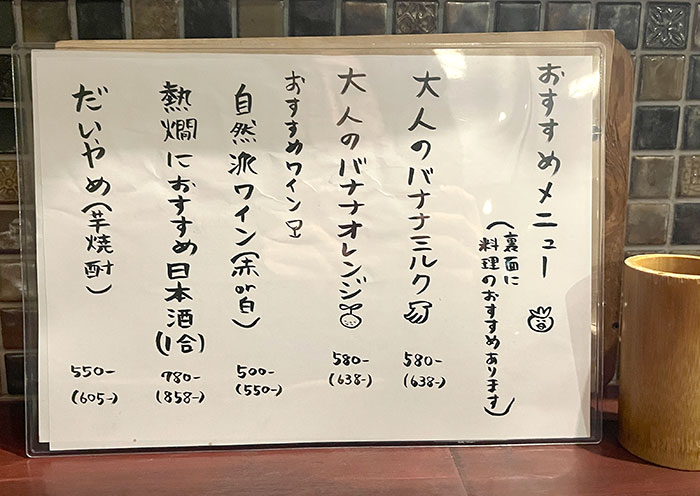 おすすめメニュー
(裏面に
料理のおすすめあります)
大人のバナナミルク
580-
(638-)
大人のバナナオレンジ
580-
(638-)
おすすめワイン
自然派ワイン(赤or白)
500-
(550-)
熱燗におすすめ日本酒(1合)
780-
(858-)
だいやめ(芋焼酎)
550-
(605-)